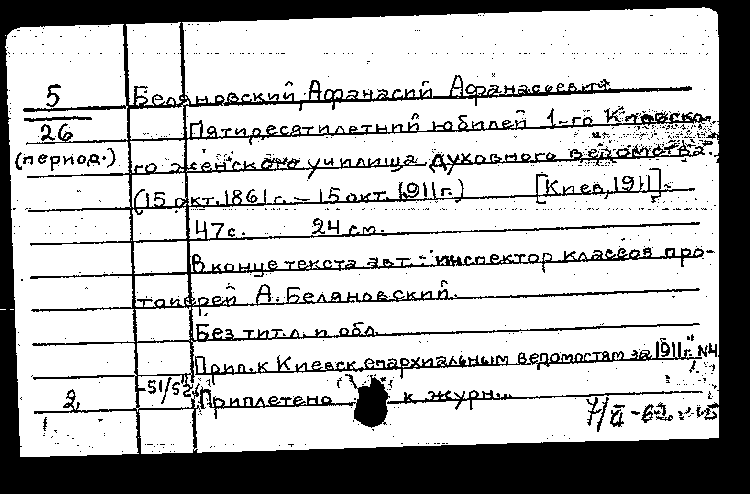 5 Беляновский, Афанасий Афанасьевич
26 Пятидесятилетний юбилей 1-го Киевско-
(период.) го женского училища духовного ведомства.
(15 окт. 1861 г. – 15 окт. 1911 г.) [Киев, 1911].
47 с. 24 см.
В конце текста авт. - инспектор классов про-
тоиерей А. Беляновский.
Без тит. л. и обл.
Прил. к Киевск. епархиальным ведомостям за 1911 г. №4
2, -51/52 Приплетено к журн...
7/II-62.